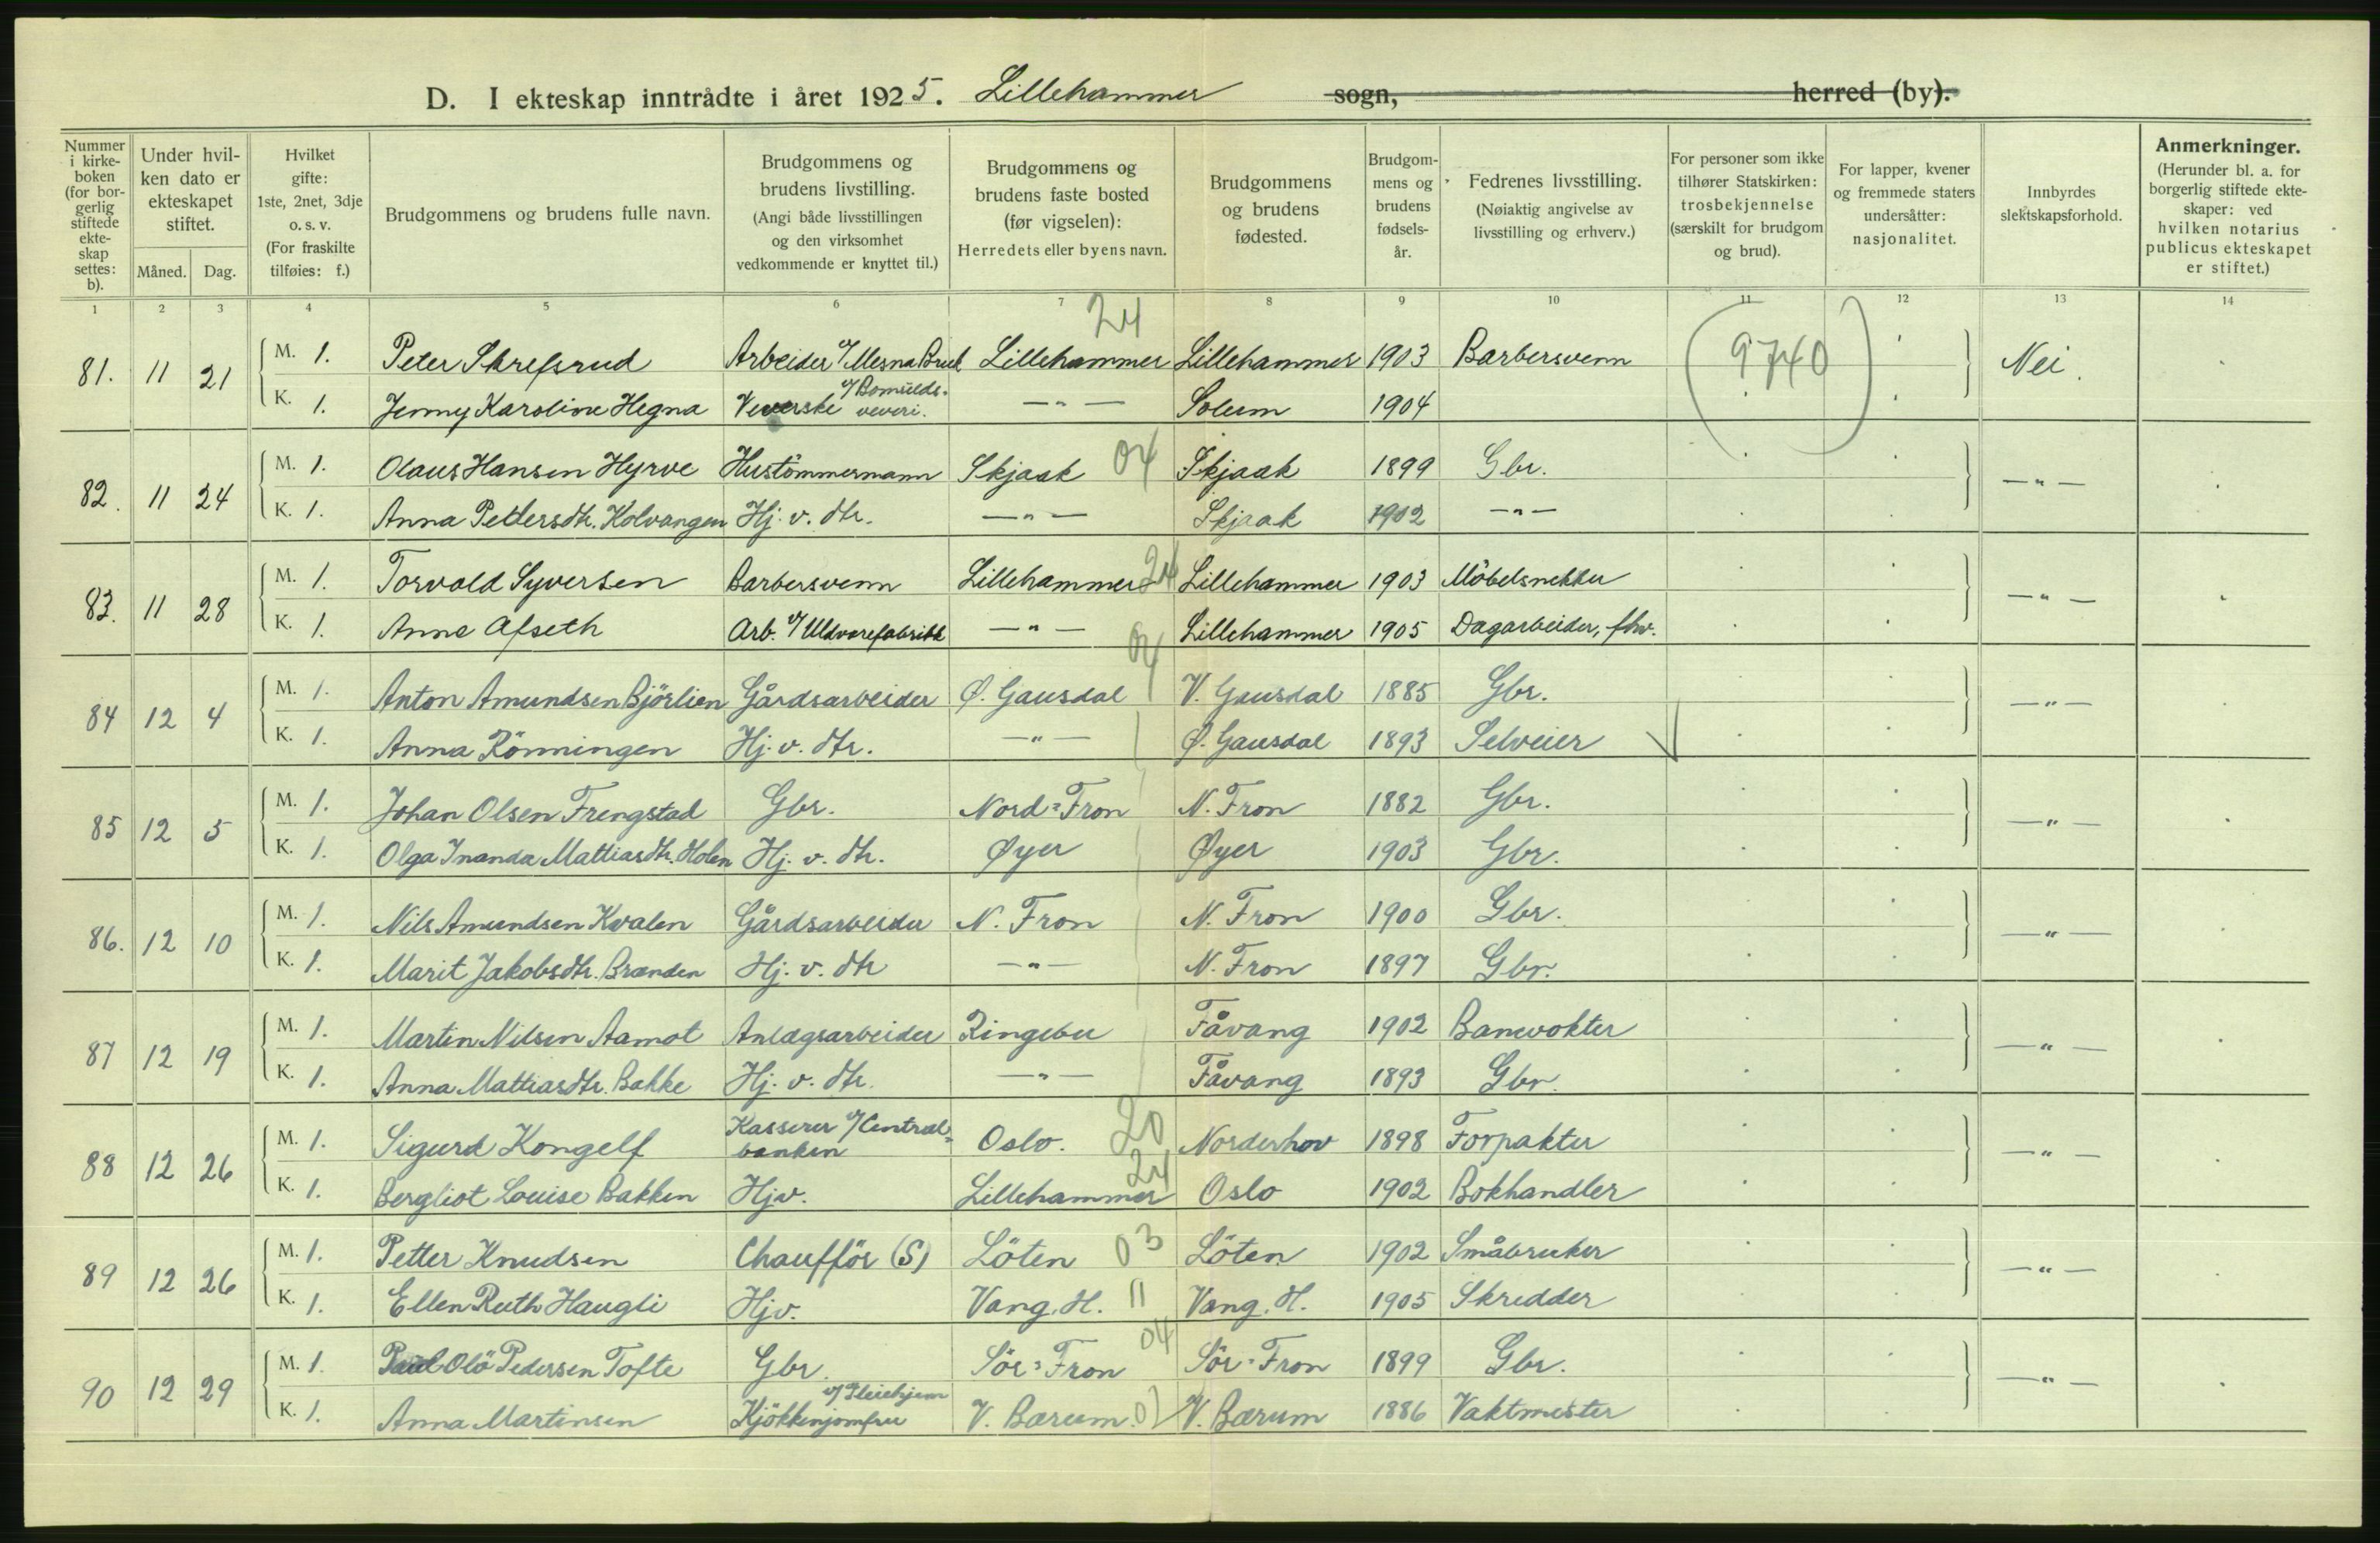 D. I ekteskap inntrådte i året 1925. Lillehammer sogn, herred (by).
Nummer i kirkeboken (for borgerlig stiftede ekteskap settes: b).
Under hvilken dato er ekteskapet stiftet.
Måned. Dag.
Hvilket gifte: 1ste, 2net, 3dje o. s. v. (For fraskilte tilføies: f.)
Brudgommens og brudens fulle navn.
Brudgommens og brudens livstilling. (Angi både livsstillingen og den virksomhet vedkommende er knyttet til.)
Brudgommens og brudens faste bosted (før vigselen): Herredets eller byens navn.
Brudgommens og brudens fødested.
Brudgommens og brudens fødselsår.
Fedrenes livsstilling. (Nøiaktig angivelse av livsstilling og erhverv.)
For personer som ikke tilhører Statskirken: trosbekjennelse (særskilt for brudgom og brud).
For lapper, kvener og fremmede staters undersåtter: nasjonalitet.
Innbyrdes slektskapsforhold.
Anmerkninger. (Herunder bl. a. for borgerlig stiftede ekteskaper: ved hvilken notarius publicus ekteskapet er stiftet.)
1 2 3 4 5 6 7 8 9 10 11 12 13 14
24
81. 11 21 M. 1. Peter Skrefsrud Arbeider v/Mesna Bruk Lillehammer Lillehammer 1903 Barbersvenn (9740) Nei.
K. 1. Jenny Karoline Hegna Veverske v/Bomulds-veveri. —"— Solum 1904
82. 11 24 M. 1. Olaus Hansen Hyrve Hustömmermann Skjaak 04 Skjaak 1899 Gbr. —"—
K. 1. Anna Pettersdtr. Kolvangen Hj. v. dtr. —"— Skjaak 1902 —"—
83. 11 28 M. 1. Torvald Syversen Barbersvenn Lillehammer 24 Lillehammer 1903 Möbelsnekker —"—
K. 1. Anna Afseth Arb. v/Uldvarefabrikk —"— Lillehammer 1905 Dagarbeider, fhv.
84 12 4 M. 1. Anton Amundsen Björlien Gårdsarbeider Ø. Gausdal 04 V. Gausdal 1885 Gbr. —"—
K. 1. Anna Rönningen Hj. v. dtr. —"— Ø. Gausdal 1893 Selveier
85 12 5 M. 1. Johan Olsen Frengstad Gbr. Nord=Fron N. Fron 1882 Gbr. —"—
K. 1. Olga Inanda Mattiasdtr. Holen Hj. v. dtr. Øyer Øyer 1903 Gbr.
86. 12 10 M. 1. Nils Amundsen Kvalen Gårdsarbeider N. Fron N. Fron 1900 Gbr. —"—
K. 1. Marit Jakobsdtr. Brænden Hj. v. dtr —"— N. Fron 1897 Gbr.
87 12 19 M. 1. Martin Nilsen Aamot Anlægsarbeider Ringebu Fåvang 1902 Banevokter —"—
K. 1. Anna Mattiasdtr. Bakke Hj. v. dtr. —"— Fåvang 1893 Gbr.
88 12 26 M. 1. Sigurd Kongelf Kasserer v/Centralbanken Oslo. 20 Norderhov 1898 Forpakter —"—
K. 1. Bergliot Louise Bakken Hjv. Lillehammer 24 Oslo 1902 Bokhandler
89 12 26 M. 1. Petter Knudsen Chaufför (S) Löten 03 Löten 1902 Småbruker —"—
K. 1. Ellen Ruth Haugli Hjv. Vang, H. 11 Vang, H. 1905 Skredder
90 12 29 M. 1. Paul Olö Pedersen Tofte Gbr. Sör=Fron 04 Sör=Fron 1899 Gbr. —"—
K. 1. Anna Martinsen Kjökkenjomfru v/Pleiehjem V. Bærum. V. Bærum 1886 Vaktmester